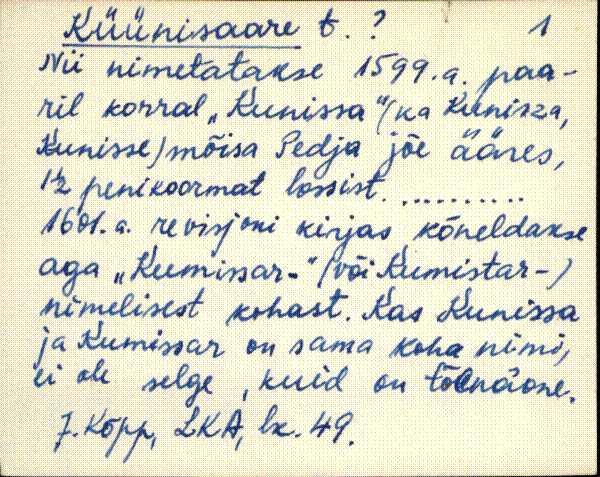 Küünisaare t. ? 1
Nii nimetatakse 1599.a. paa-
ril korral „Kunissa" (ka Kunisza,
Kunisse) mõisa Pedja jõe ääres,
1½ penikoormat lossist. ..........
1601.a. revisjoni kirjas kõneldakse
aga „Kumissar-" (või Kumistar-)
nimelisest kohast. Kas Kunissa
ja Kumissar on sama koha nimi,
ei ole selge, kuid on tõenäone.
J. Kõpp, LKA, lk. 49.